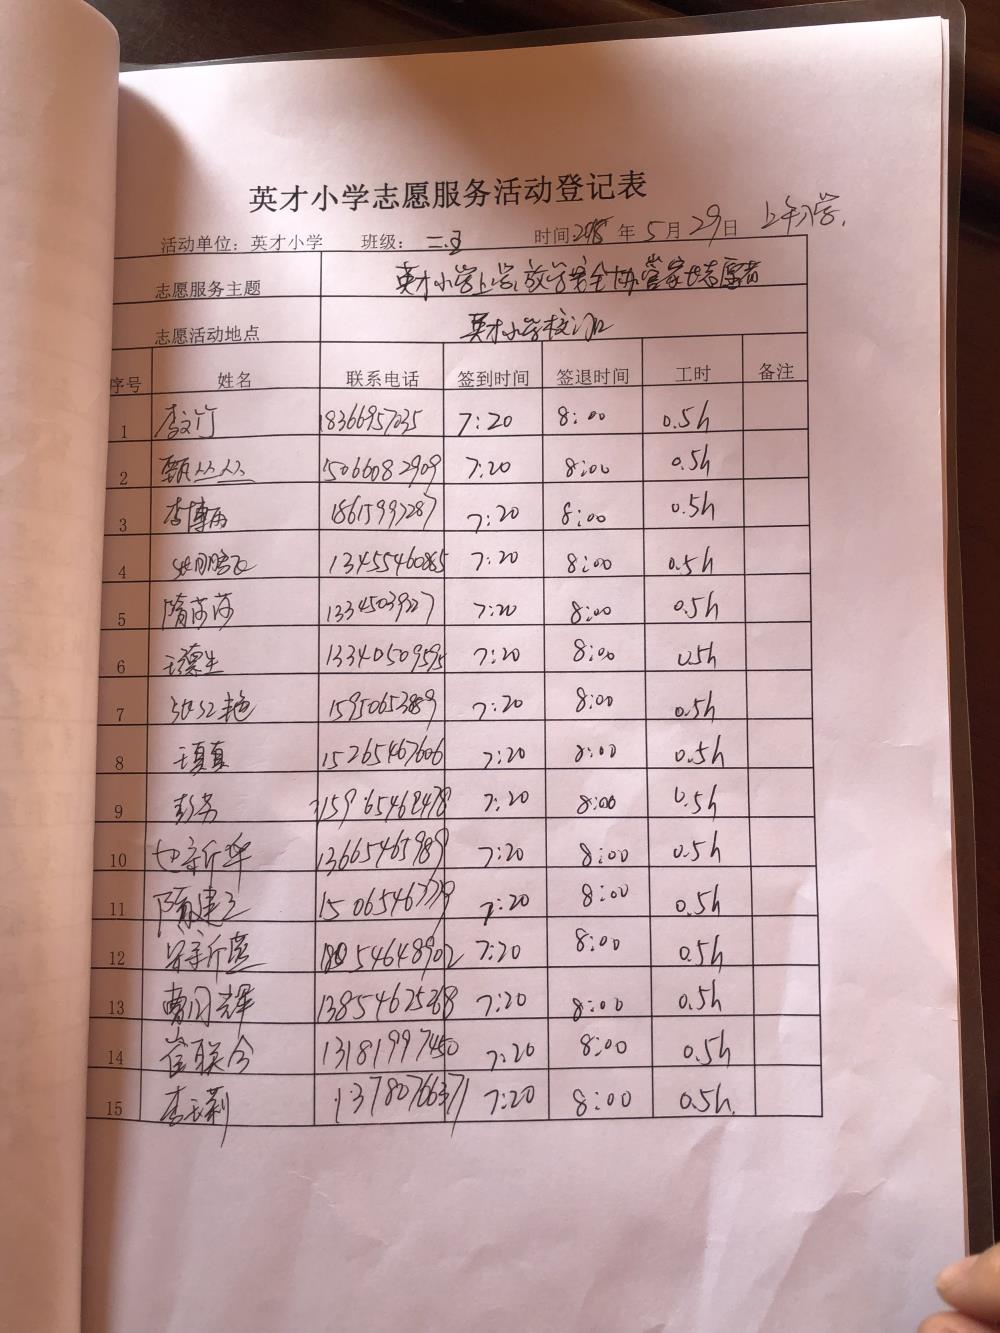 英才小学志愿服务活动登记表
活动单位：英才小学 班级：二.五 时间2018年5月29日 上午上学.
志愿服务主题 英才小学上学、放学安全协管家长志愿者
志愿活动地点 英才小学校门口
序号 姓名 联系电话 签到时间 签退时间 工时 备注
1 李文竹 18366957035 7:20 8:00 0.5h
2 甄丛丛 15066082909 7:20 8:00 0.5h
3 李博雨 18615993287 7:20 8:00 0.5h
4 13455460865 7:20 8:00 0.5h
5 隋莎莎 13345039227 7:20 8:00 0.5h
6 王德生 13340509595 7:20 8:00 0.5h
7 张红艳 15950653889 7:20 8:00 0.5h
8 王真真 15265467606 7:20 8:00 0.5h
9 彭芳 15965468478 7:20 8:00 0.5h
10 新华 13665465989 7:20 8:00 0.5h
11 隋建立 7:20 8:00 0.5h
12 新燕 18054648902 7:20 8:00 0.5h
13 曹同辉 13854625268 7:20 8:00 0.5h
14 崔联合 13181997450 7:20 8:00 0.5h
15 李玉莉 13780766371 7:20 8:00 0.5h.